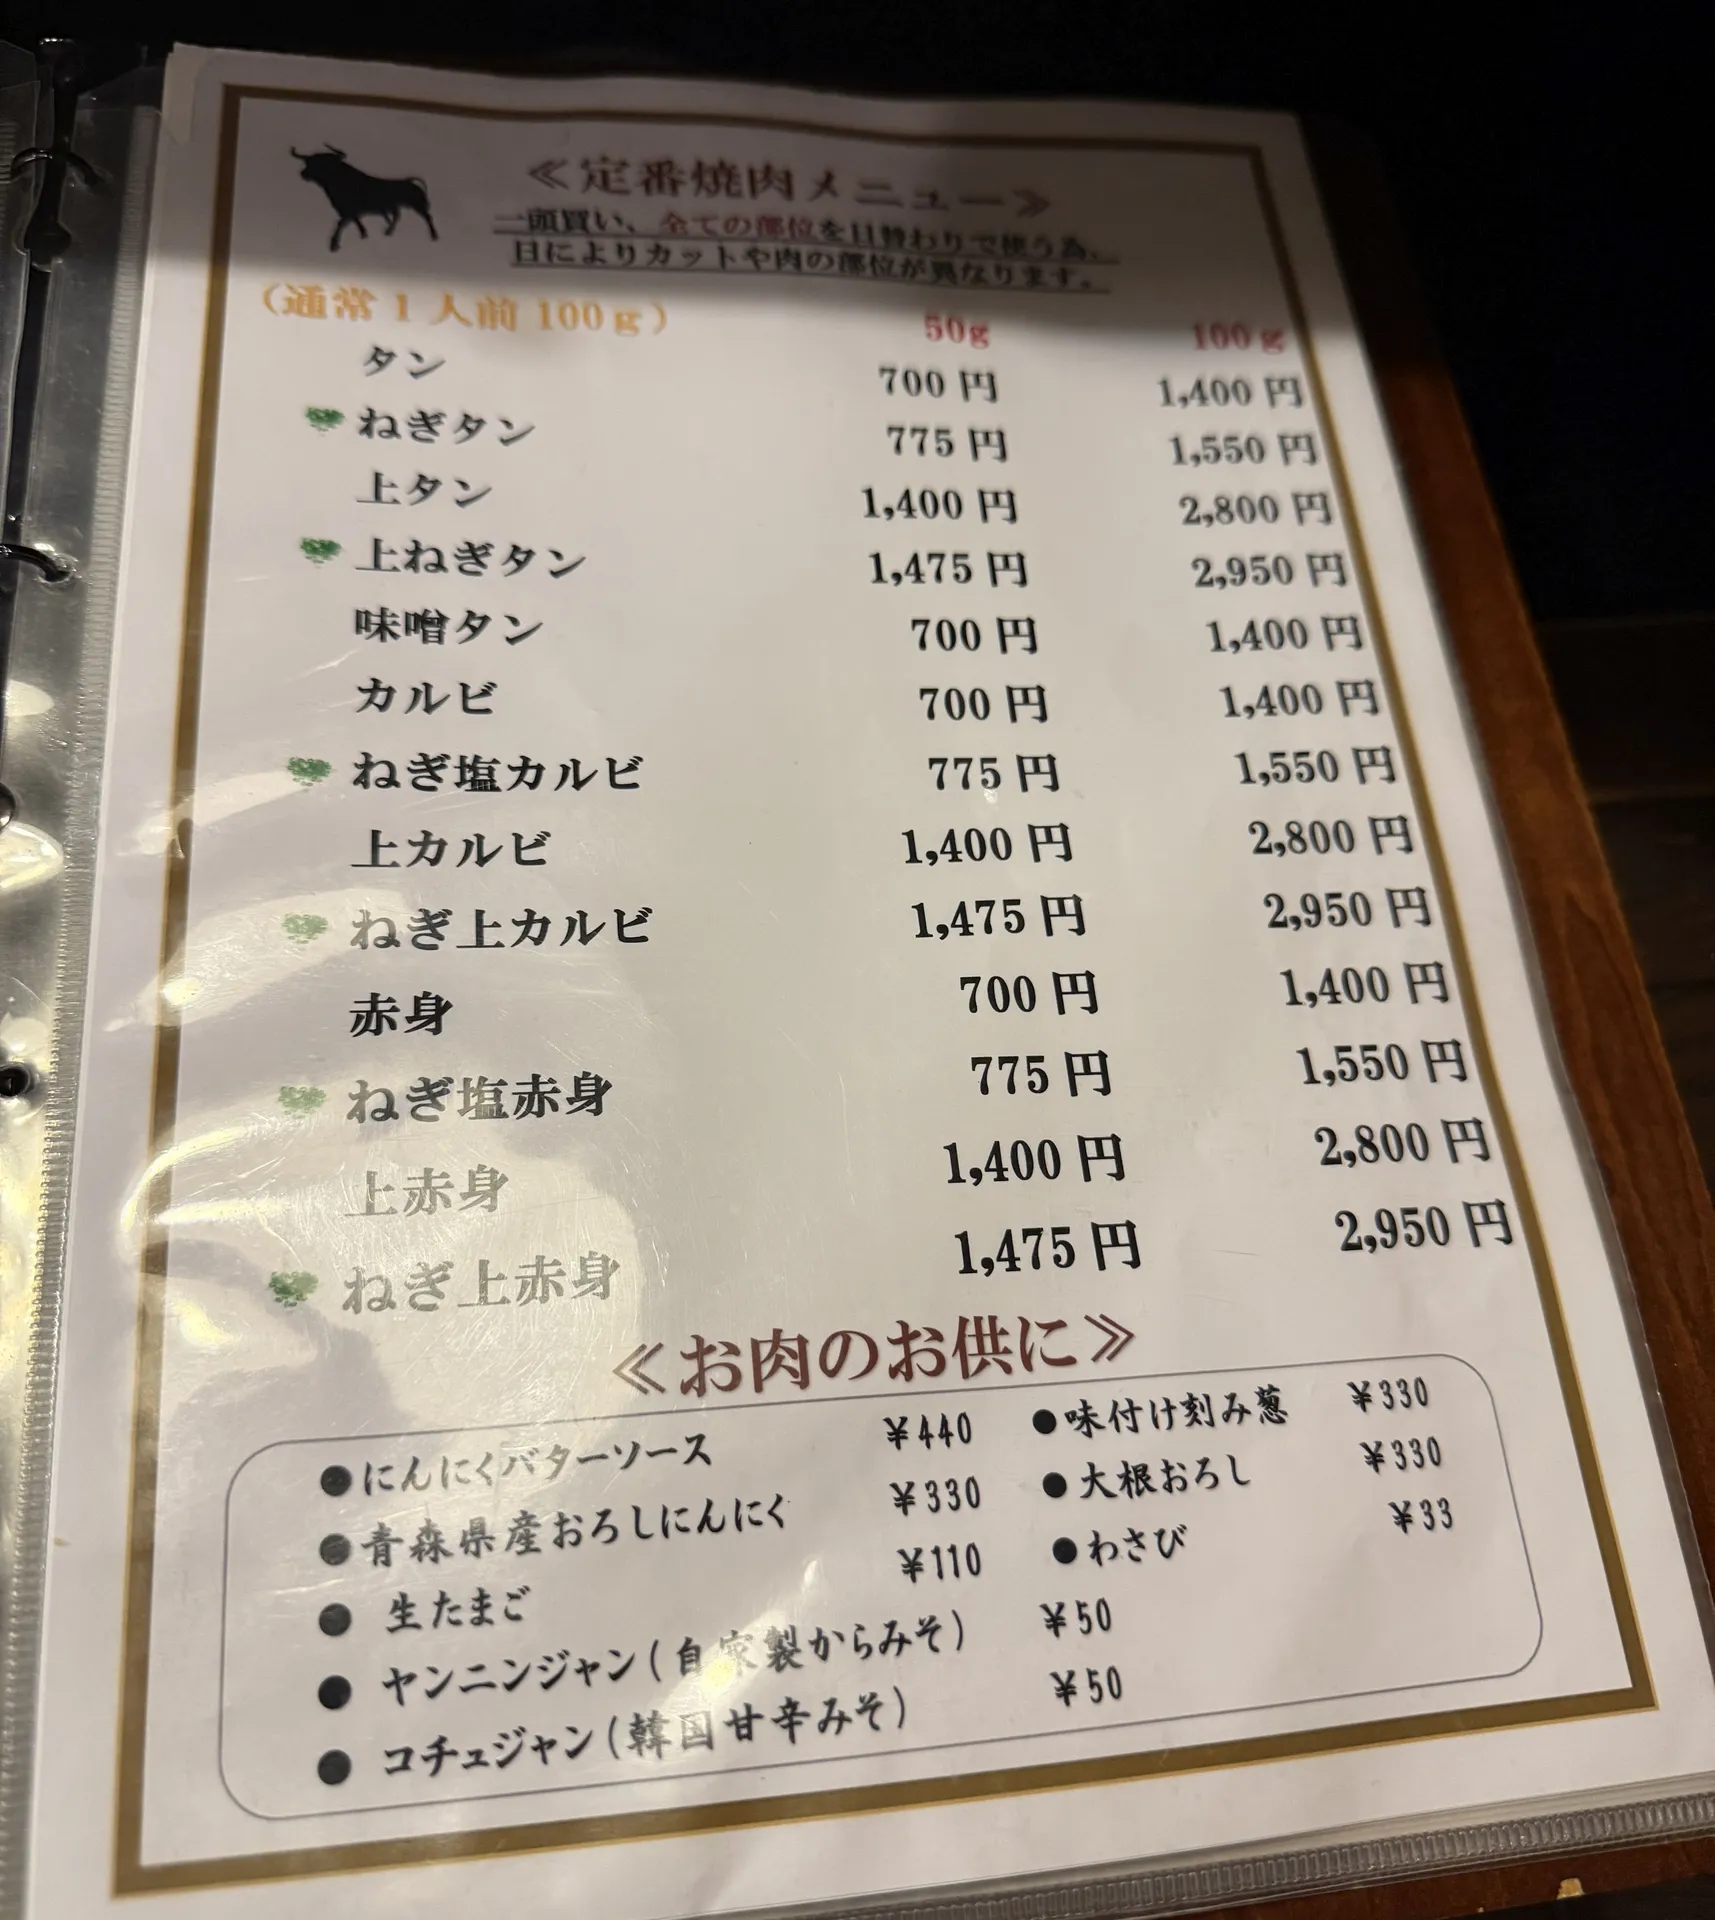 ≪定番焼肉メニュー≫
一頭買い、全ての部位を日替わりで使う為、
日によりカットや肉の部位が異なります。
（通常1人前100g） 50g 100g
タン 700円 1,400円
ねぎタン 775円 1,550円
上タン 1,400円 2,800円
上ねぎタン 1,475円 2,950円
味噌タン 700円 1,400円
カルビ 700円 1,400円
ねぎ塩カルビ 775円 1,550円
上カルビ 1,400円 2,800円
ねぎ上カルビ 1,475円 2,950円
赤身 700円 1,400円
ねぎ塩赤身 775円 1,550円
上赤身 1,400円 2,800円
ねぎ上赤身 1,475円 2,950円
≪お肉のお供に≫
●にんにくバターソース ¥440 ●味付け刻み葱 ¥330
●青森県産おろしにんにく ¥330 ●大根おろし ¥330
●生たまご ¥110 ●わさび ¥33
●ヤンニンジャン(自家製からみそ) ¥50
●コチュジャン(韓国甘辛みそ) ¥50